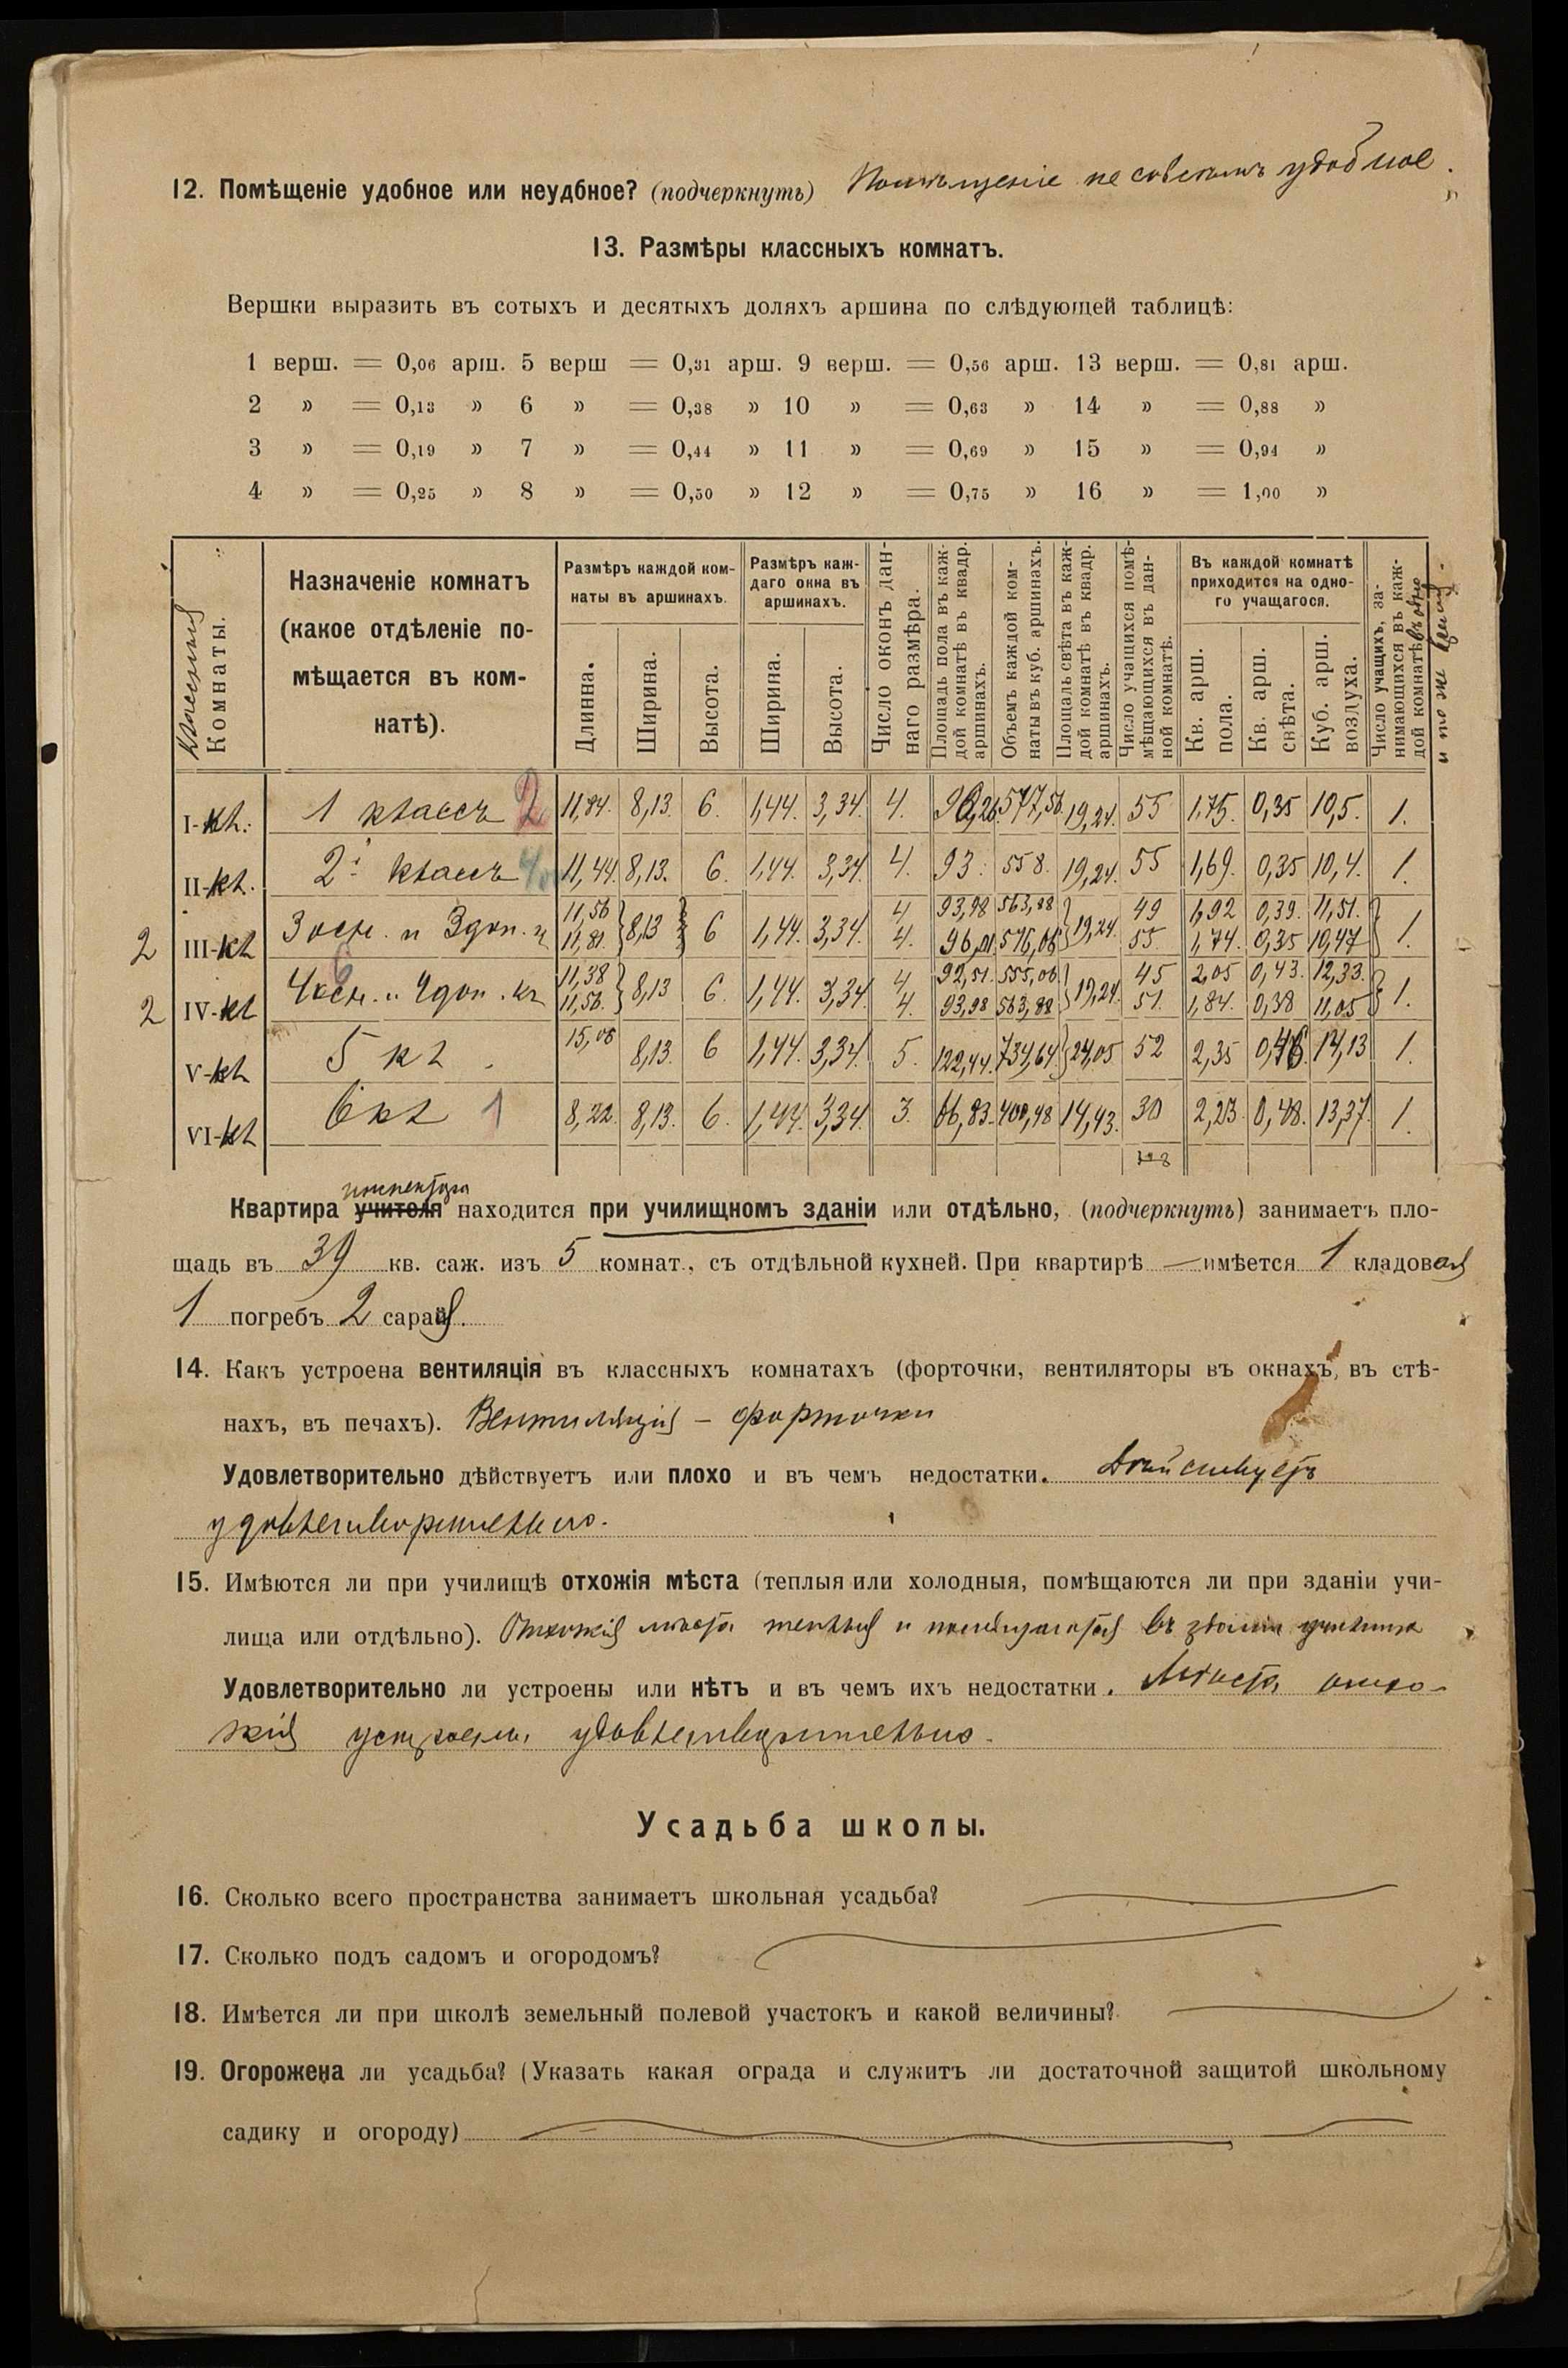 12. Помѣщеніе удобное или неудбное? (подчеркнуть) Помѣщеніе не совсѣмъ удобное.
13. Размѣры классныхъ комнатъ.
Вершки выразить въ сотыхъ и десятыхъ доляхъ аршина по слѣдующей таблицѣ:
1 верш. = 0,06 арш. 5 верш = 0,31 арш. 9 верш. = 0,56 арш. 13 верш. = 0,81 арш.
2 » = 0,13 » 6 » = 0,38 » 10 » = 0,63 » 14 » = 0,88 »
3 » = 0,19 » 7 » = 0,44 » 11 » = 0,69 » 15 » = 0,94 »
4 » = 0,25 » 8 » = 0,50 » 12 » = 0,75 » 16 » = 1,00 »
Классныя
Комнаты.
Назначеніе комнатъ
(какое отдѣленіе по-
мѣщается въ ком-
натѣ).
Размѣръ каждой ком-
наты въ аршинахъ.
Длинна.
Ширина.
Высота.
Размѣръ каж-
даго окна въ
аршинахъ.
Ширина.
Высота.
Число оконъ дан-
наго размѣра.
Площадь пола въ каж-
дой комнатѣ въ квадр.
аршинахъ.
Объемъ каждой ком-
наты въ куб. аршинахъ.
Площаль свѣта въ каж-
дой комнатѣ въ квадр.
аршинахъ.
Число учащихся помѣ-
мѣщающихся въ дан-
ной комнатѣ.
Въ каждой комнатѣ
приходится на одно-
го учащагося.
Кв. арш.
пола.
Кв. арш.
свѣта.
Куб. арш.
воздуха.
Число учащихъ, за-
нимающихся въ каж-
дой комнатѣ въ одно
и то же время.
I-кл. 1 классъ 2 11,84. 8,13. 6. 1,44. 3,34. 4. 96,26. 577,56. 19,24. 55 1,75. 0,35 10,5. 1.
II-кл. 2й классъ 4 11,44. 8,13. 6. 1,44. 3,34. 4. 93. 558. 19,24. 55 1,69. 0,35 10,4. 1.
11,56 4 93,98 563,88 49 1,92 0,39. 11,51.
2 III-кл 3 осн. и 3 доп. к 11,81. 8,13 6 1,44. 3,34. 4. 96,01 576,06 19,24. 55. 1,74. 0,35 10,47 1.
11,38 4 92,51. 555,06 45 2,05 0,43. 12,33.
2 IV-кл 4 осн. и 4 доп. кл 11,56. 8,13 6. 1,44. 3,34. 4. 93,98 563,88 19,24. 51. 1,84. 0,38 11,05 1.
V-кл 5 кл. 15,06 8,13. 6 1,44. 3,34. 5. 122,44. 734,64. 24,05 52 2,35 0,46. 14,13 1.
VI-кл 6 кл 1 8,22. 8,13. 6. 1,44. 3,34. 3. 66,83. 400,98 14,43. 30 2,23. 0,48. 13,37. 1.
инспектора
Квартира учителя находится при училищномъ зданіи или отдѣльно, (подчеркнуть) занимаетъ пло-
щадь въ 39 кв. саж. изъ 5 комнат., съ отдѣльной кухней. При квартирѣ — имѣется 1 кладовая
1 погребъ 2 сарая.
14. Какъ устроена вентиляція въ классныхъ комнатахъ (форточки, вентиляторы въ окнахъ, въ стѣ-
нахъ, въ печахъ). Вентиляція – форточки
Удовлетворительно дѣйствуетъ или плохо и въ чемъ недостатки. Дѣйствуетъ
удовлетворительно.
15. Имѣются ли при училищѣ отхожія мѣста (теплыя или холодныя, помѣщаются ли при зданіи учи-
лища или отдѣльно). Отхожія мѣста теплыя и помѣщаются въ зданіи училища
Удовлетворительно ли устроены или нѣтъ и въ чемъ ихъ недостатки. Мѣста отхо-
жія устроены удовлетворительно.
Усадьба школы.
16. Сколько всего пространства занимаетъ школьная усадьба?
17. Сколько подъ садомъ и огородомъ?
18. Имѣется ли при школѣ земельный полевой участокъ и какой величины?
19. Огорожена ли усадьба? (Указать какая ограда и служитъ ли достаточной защитой школьному
садику и огороду)